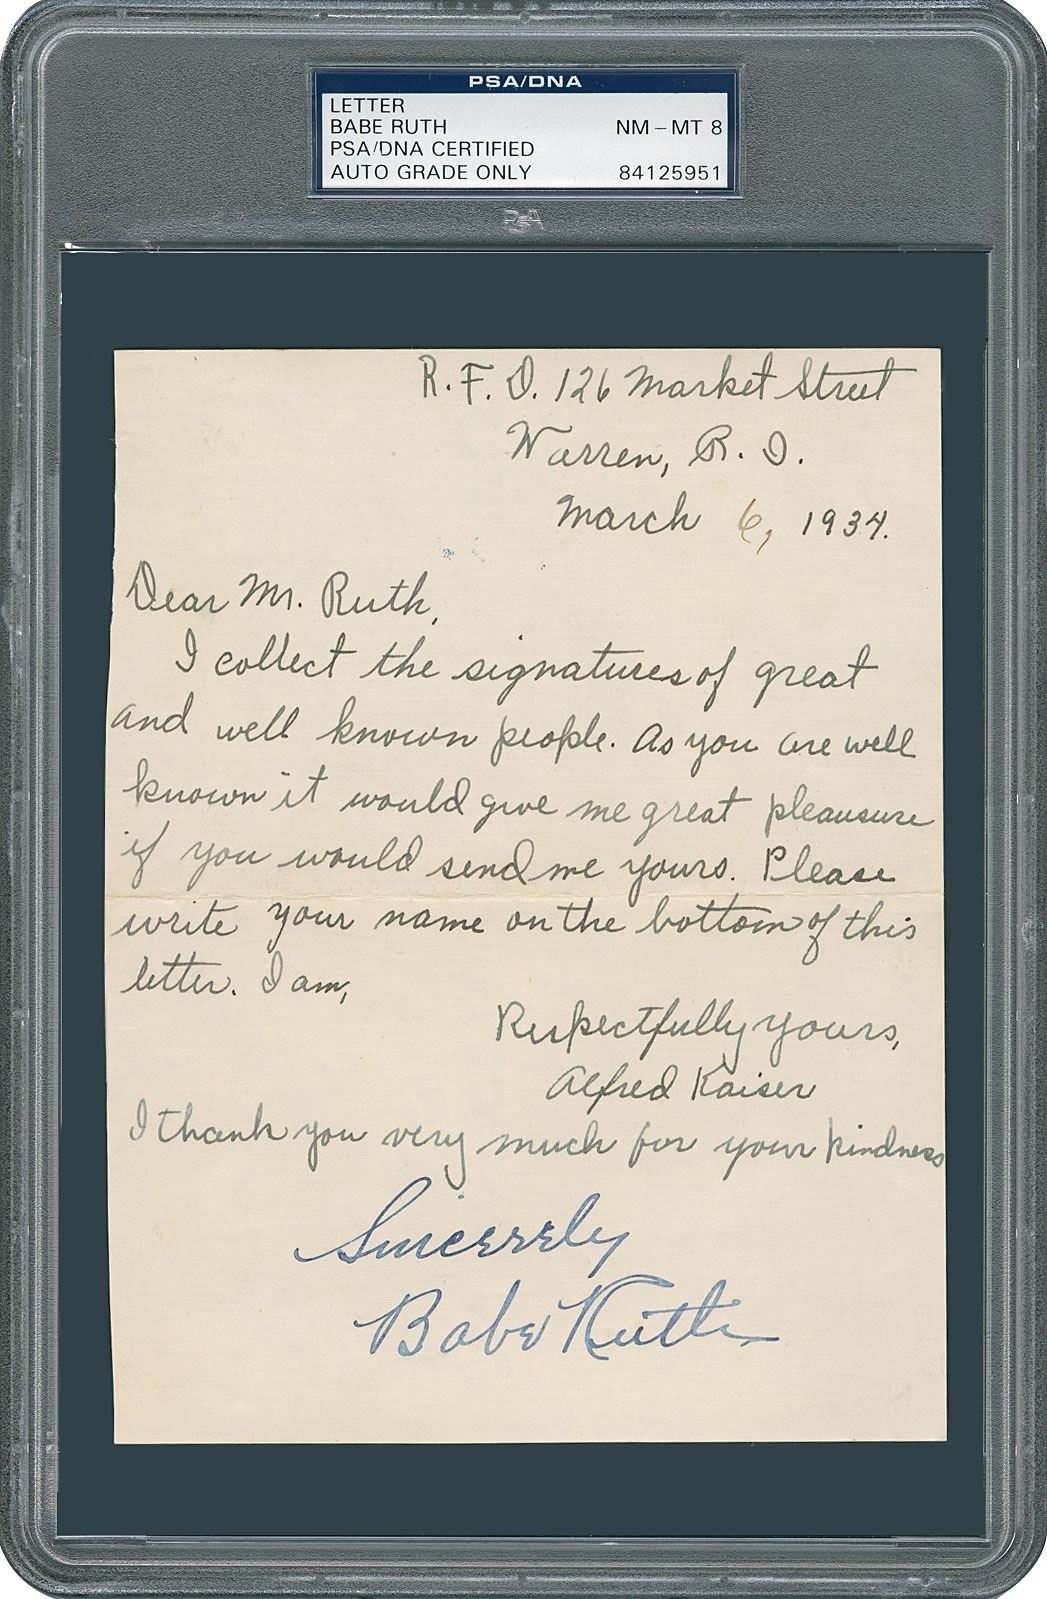 PSA/DNA
LETTER
BABE RUTH NM-MT 8
PSA/DNA CERTIFIED
AUTO GRADE ONLY 84125951
PSA
R. F. D. 126 Market Street
Warren, R. I.
March 6, 1934.
Dear Mr. Ruth,
I collect the signatures of great
and well known people. As you are well
known it would give me great pleausure
if you would send me yours. Please
write your name on the bottom of this
letter. I am,
Respectfully yours,
Alfred Kaiser
I thank you very much for your kindness
Sincerely
Babe Ruth